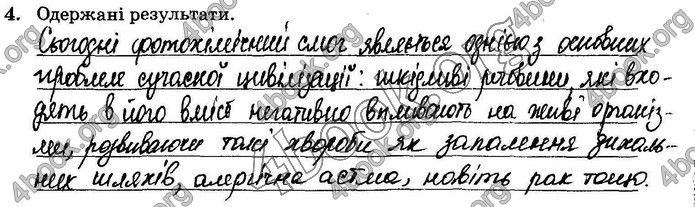 4. Одержані результати.
Сьогодні фотохімічний смог являється однією з основних
проблем сучасної цивілізації: шкідливі речовини, які вхо-
дять в його вміст негативно впливають на живі організ-
ми, розвиваючи такі хвороби як запалення дихаль-
них шляхів, алергічна астма, навіть рак тощо.
4book.org